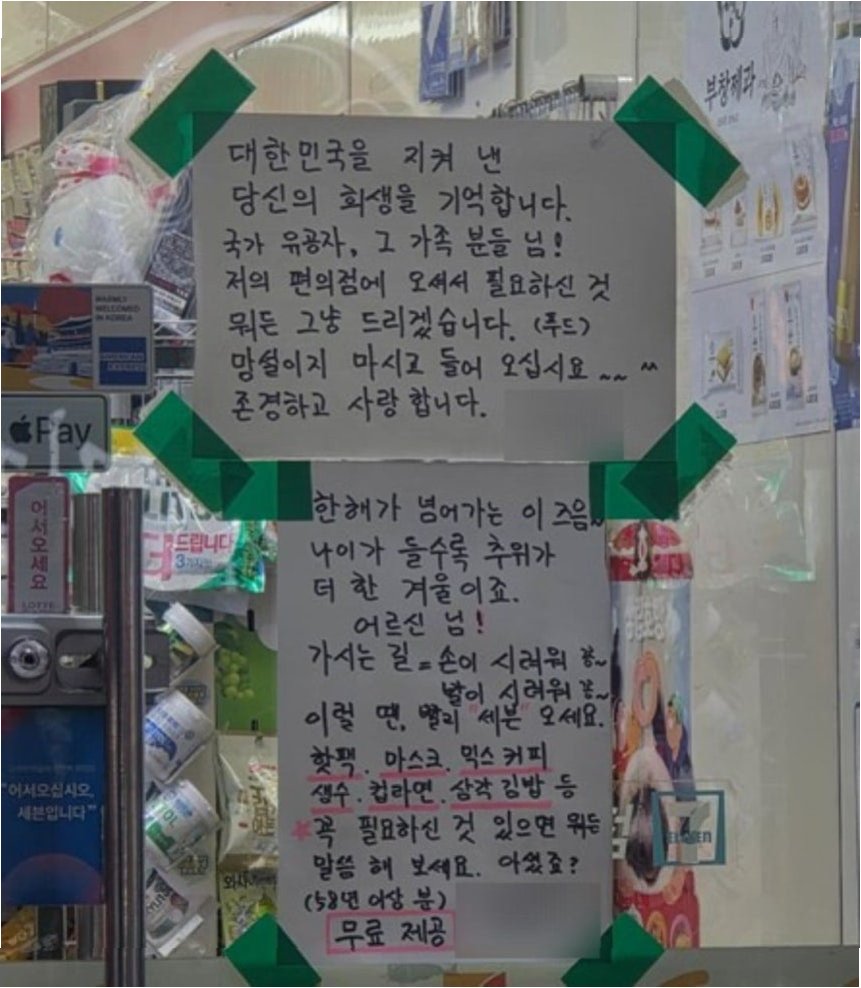 부창제과
대한민국을 지켜 낸
당신의 희생을 기억합니다.
국가 유공자, 그 가족 분들 님!
저의 편의점에 오셔서 필요하신 것
뭐든 그냥 드리겠습니다. (푸드)
망설이지 마시고 들어 오십시요 ~~ ^^
존경하고 사랑 합니다.
WARMLY
WELCOMED
IN KOREA
AMERICAN
EXPRESS
Pay
어서오세요
LOTTE
더 드립니다
한해가 넘어가는 이 즈음~
나이가 들수록 추위가
더 한 겨울이죠.
어르신 님!
가시는 길 = 손이 시려워 꽁~
발이 시려워 꽁~
이럴 땐, 빨리 "세븐" 오세요.
핫팩. 마스크. 믹스 커피
생수. 컵라면. 삼각 김밥 등
★꼭 필요하신 것 있으면 뭐든
말씀 해 보세요. 아셨죠?
(58년 이상 분)
무료 제공
"어서오십시오,
세븐입니다"
7
ELEVEN
와사